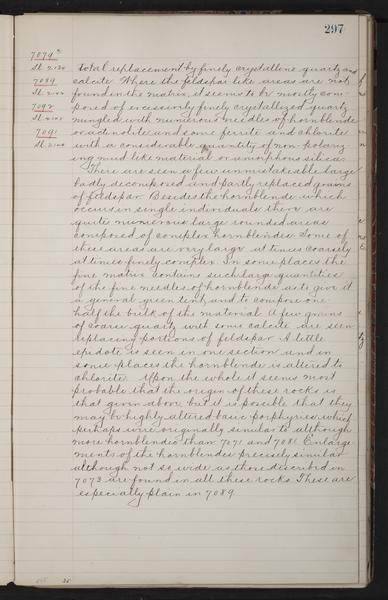 297
7094a
Sl. 2130
7089
7092
7091
total replacement by finely crystalline quartz and
calcite. Where the feldspar like areas are not
found in the matrix, it seems to be mostly com-
posed of excessively finely crystallized quartz
mingled with numerous needles of hornblende
or actinolite and some ferrite and chlorite
with a considerable quantity of non-polariz
ing mud like material or amorphous silica.
There are seen a few unmistakeable large
badly decomposed and partly replaced grains
of feldspar. Besides the hornblende which
occurs in single individuals there are
quite numerous large rounded areas
composed of complex hornblendes. Some of
these areas are very large at times coarsely
at times finely complex. In some places the
fine matrix contains such large quantities
of the fine needles of hornblende as to give it
a general green tint and to compose one
half the bulk of the material. A few grains
of coarse quartz with some calcite are seen
replacing portions of feldspar. A little
epidote is seen in one section and in
some places the hornblende is altered to
chlorite. Upon the whole it seems most
probable that the origin of these rocks is
that given above but it is possible that they
may be highly altered basic porphyries which
perhaps were originally similar to although
more hornblendic than 7071 and 7081. Enlarge
ments of the hornblendes precisely similar
although not so wide as those described in
7073 are found in all these rocks. These are
especially plain in 7089